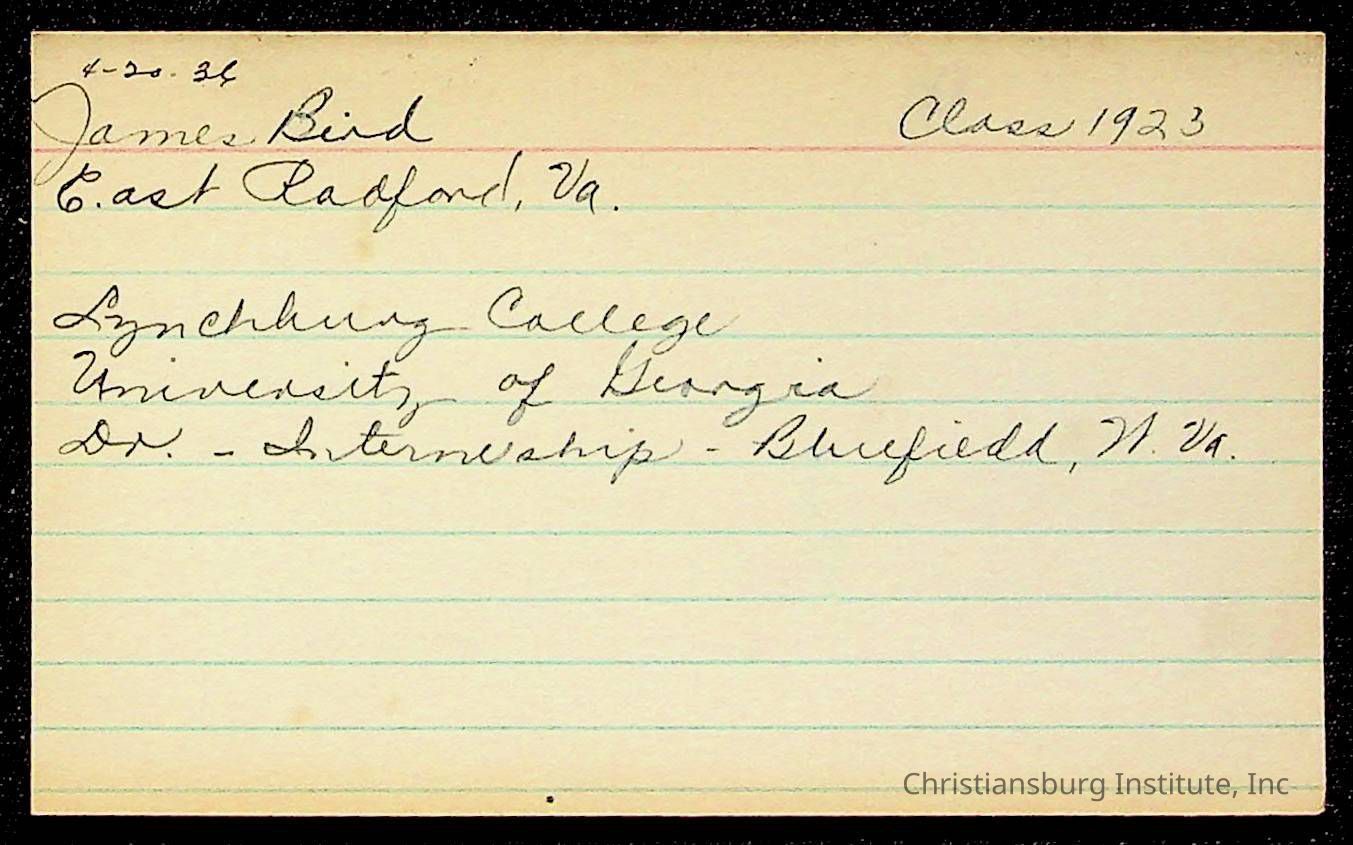 4-20-36
James Bird Class 1923
East Radford, Va.
Lynchburg College
University of Georgia
Dr. - Interneship - Bluefield, W. Va.
Christiansburg Institute, Inc